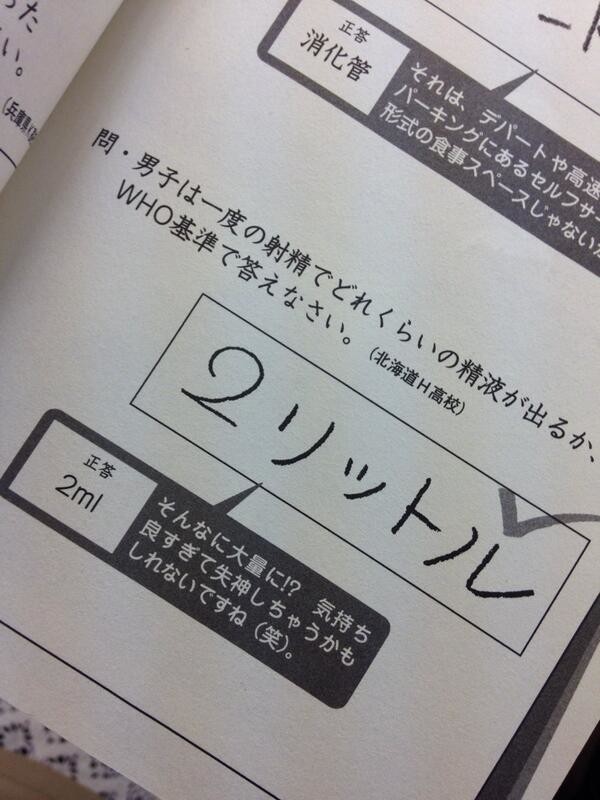 った
い。
(兵庫県
正答
消化管
それは、デパートや高速
パーキングにあるセルフサー
形式の食事スペースじゃないか
問・男子は一度の射精でどれくらいの精液が出るか、
WHO基準で答えなさい。(北海道H高校)
2リットル
正答
2ml
そんなに大量に!? 気持ち
良すぎて失神しちゃうかも
しれないですね(笑)。